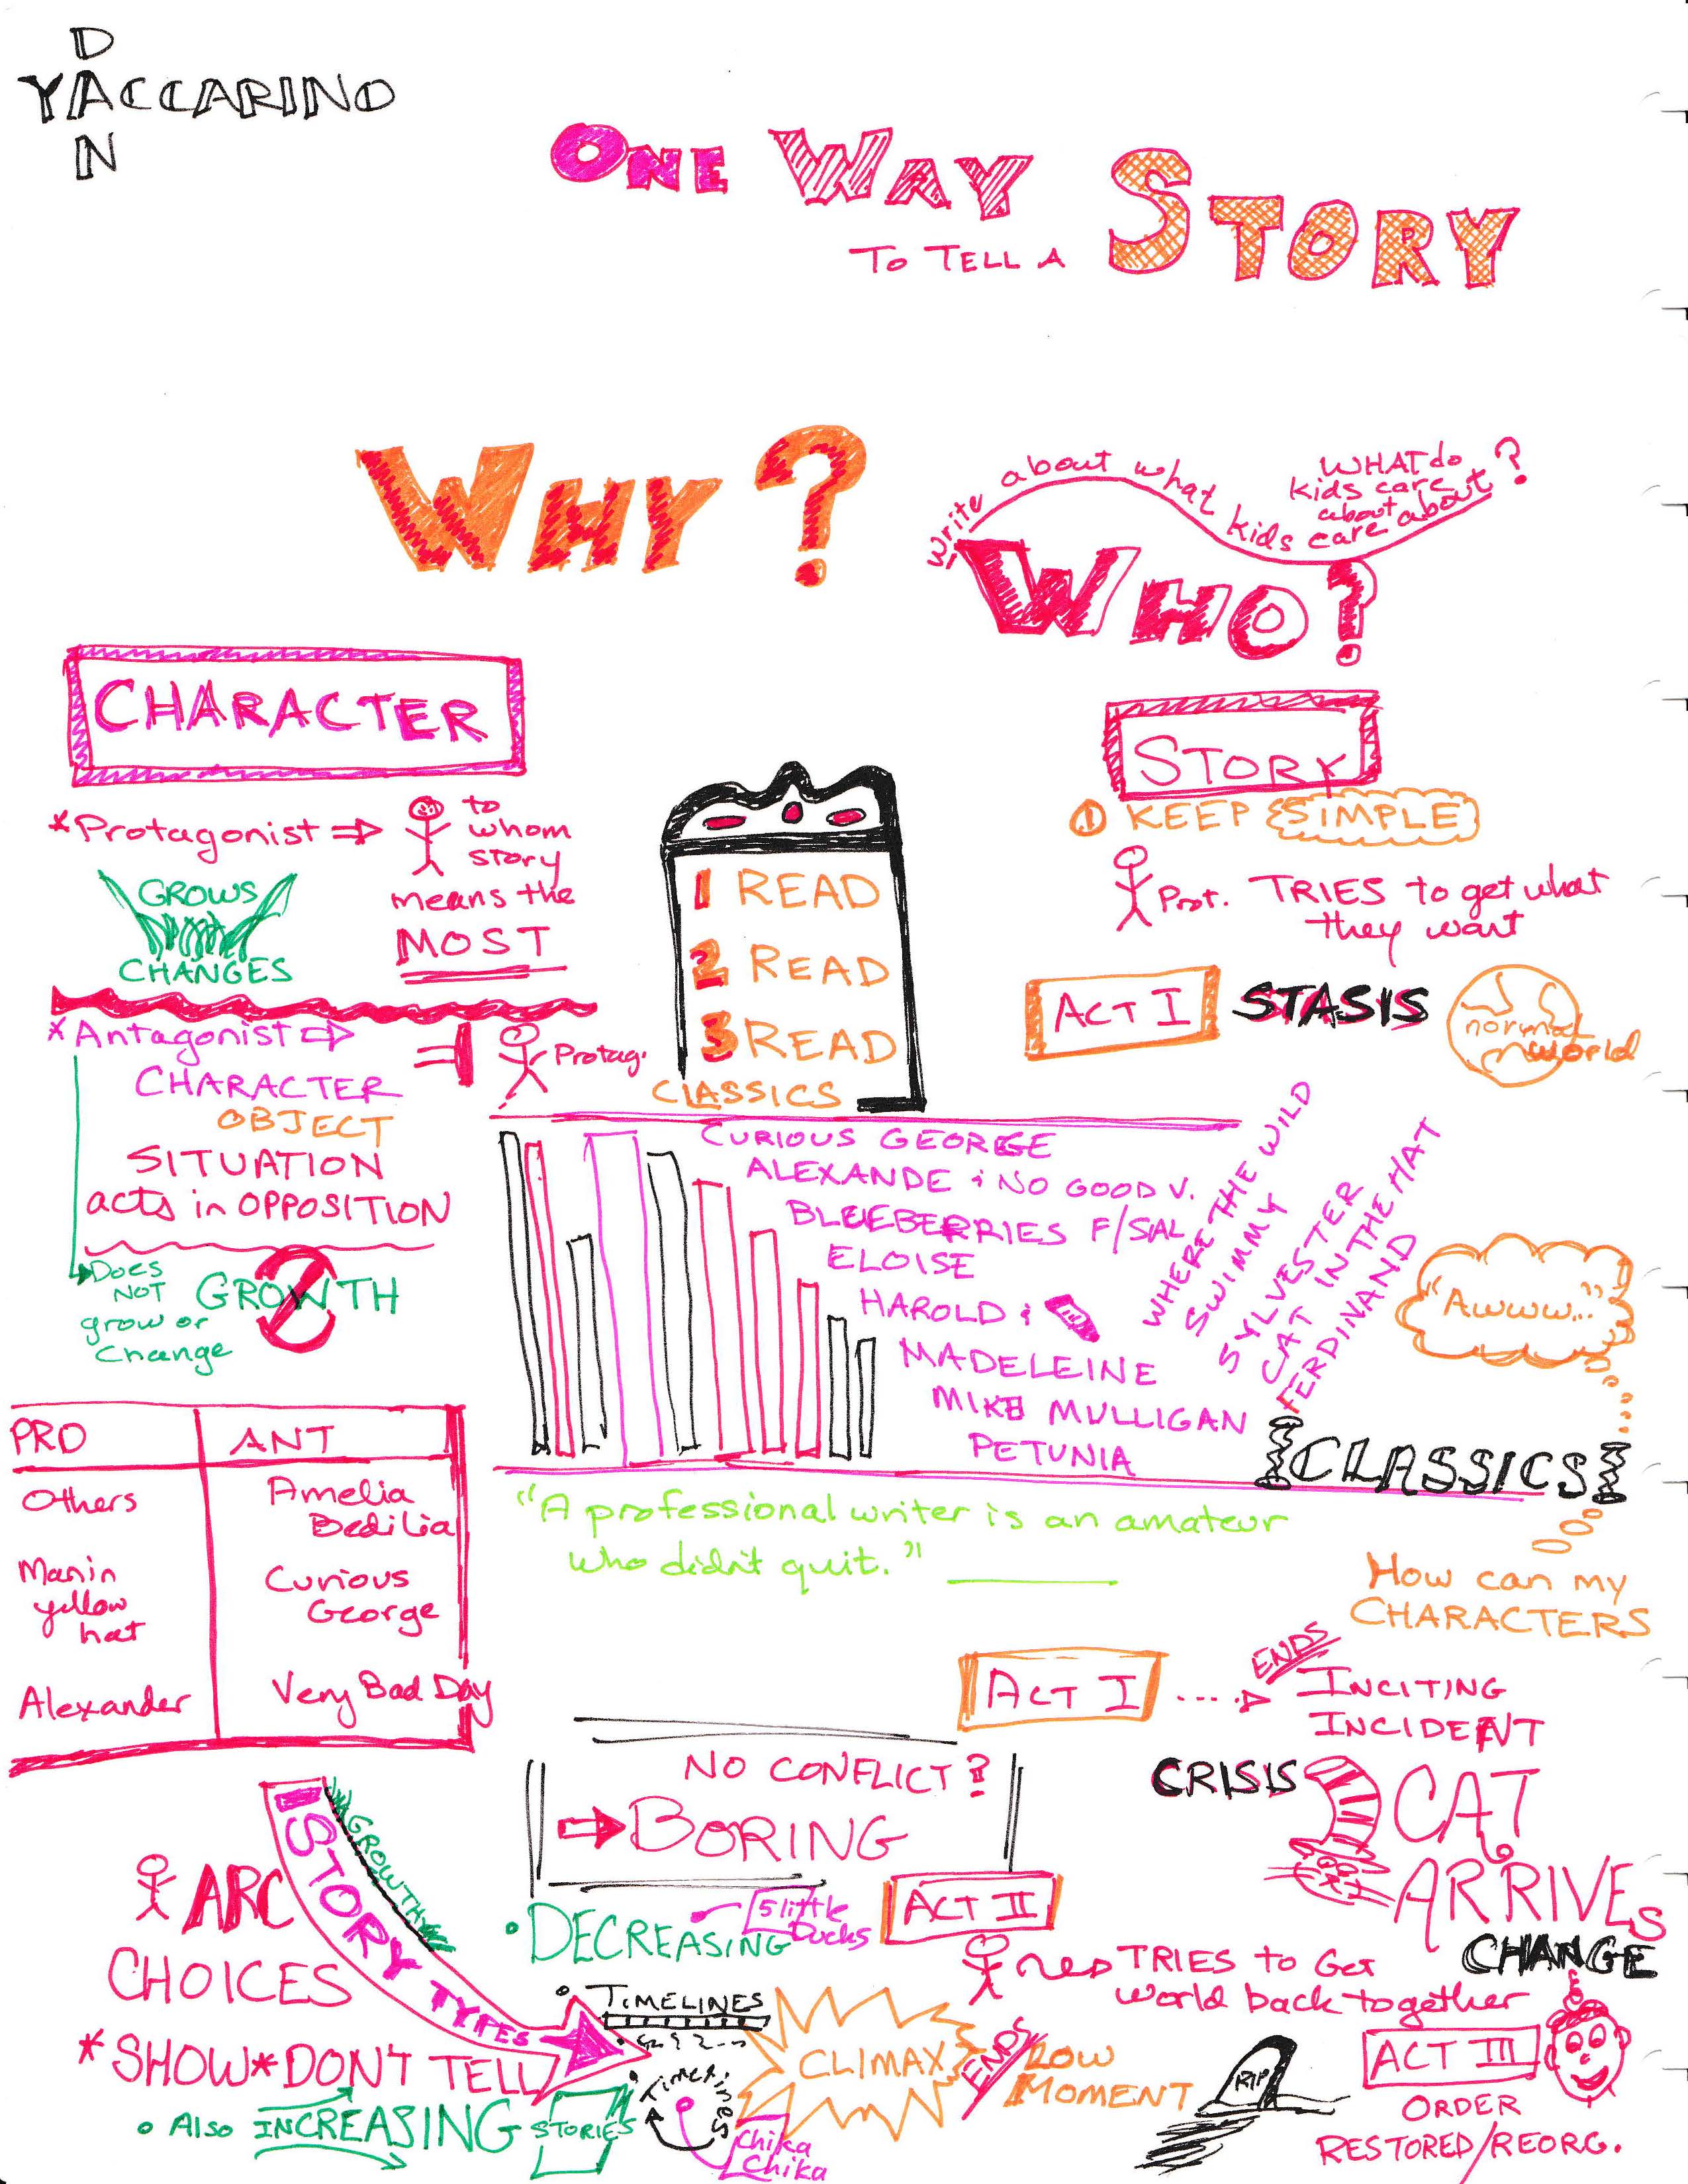 DAN
YACCARINO
ONE WAY
TO TELL A STORY
WHY?
Write about what kids care about
WHAT do
kids care
about?
WHO?
CHARACTER
*Protagonist ⇒ to
whom
story
means the
MOST
GROWS
CHANGES
*Antagonist ⇒
Protag.
CHARACTER
OBJECT
SITUATION
acts in OPPOSITION
Does
NOT
grow or
Change
GROWTH
PRO ANT
Others Amelia
Bedilia
Man in
yellow
hat
Curious
George
Alexander Very Bad Day
1 READ
2 READ
3 READ
CLASSICS
CURIOUS GEORGE
ALEXANDE & NO GOOD V.
BLUEBERRIES F/SAL
ELOISE
HAROLD &
MADELEINE
MIKE MULLIGAN
PETUNIA
WHERE THE WILD
SWIMMY
SYLVESTER
CAT IN THE HAT
FERDINAND
CLASSICS
"A professional writer is an amateur
who didn't quit."
STORY
1 KEEP SIMPLE
Prot. TRIES to get what
they want
ACT I STASIS
normal
world
"Awww..."
How can my
CHARACTERS
ACT I ENDS
INCITING
INCIDENT
CRISIS
CAT
ARRIVES
CHANGE
NO CONFLICT?
BORING
ACT II
TRIES to Get
world back together
CLIMAX
ENDS
LOW
MOMENT
RIP
ACT III
ORDER
RESTORED/REORG.
STORY TYPES
GROWTH
ARC
CHOICES
*SHOW*DON'T TELL
• Also INCREASING STORIES
• DECREASING
5 little
Ducks
• TIMELINES
• Timelines
Chika
Chika